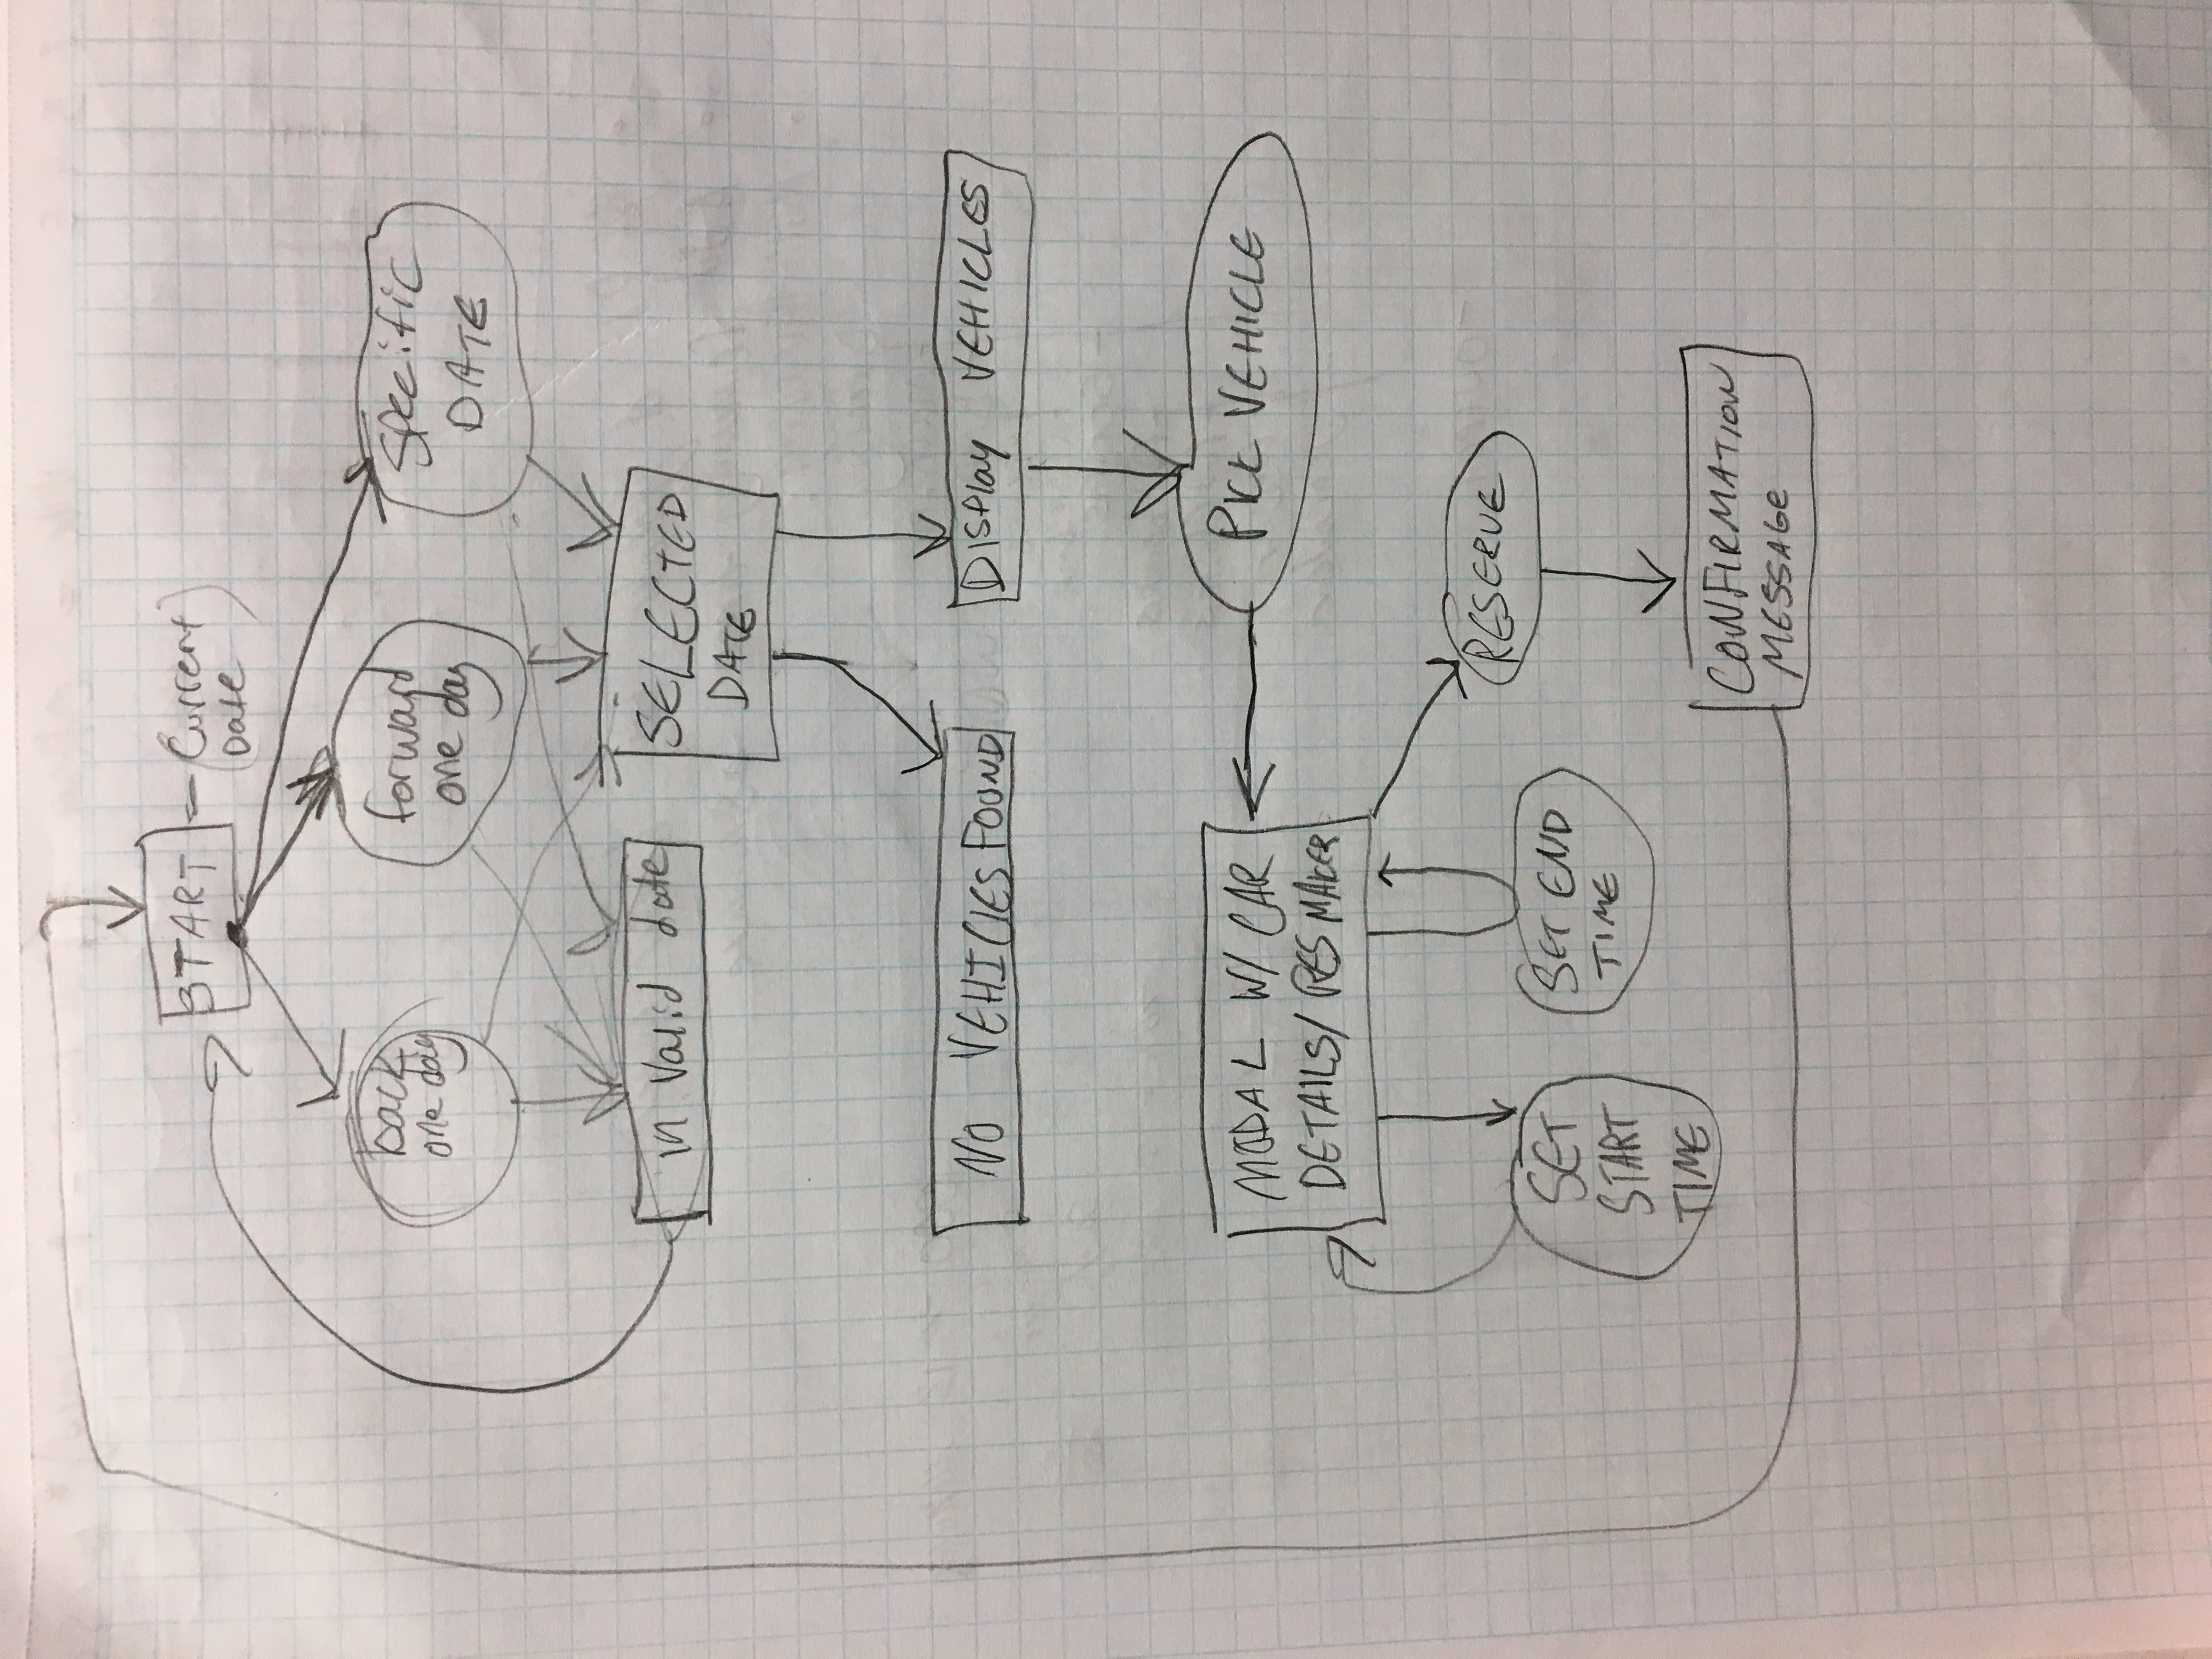 START = (Current
Date)
back
one day
forward
one day
Specific
DATE
in valid date
SELECTED
DATE
NO VEHICLES FOUND
DISPlay VEHICLES
PICK VEHICLE
MODAL W/ CAR
DETAILS/ RES MAKER
RESERVE
SET
START
TIME
SET END
TIME
CONFIRMATION
MESSAGE